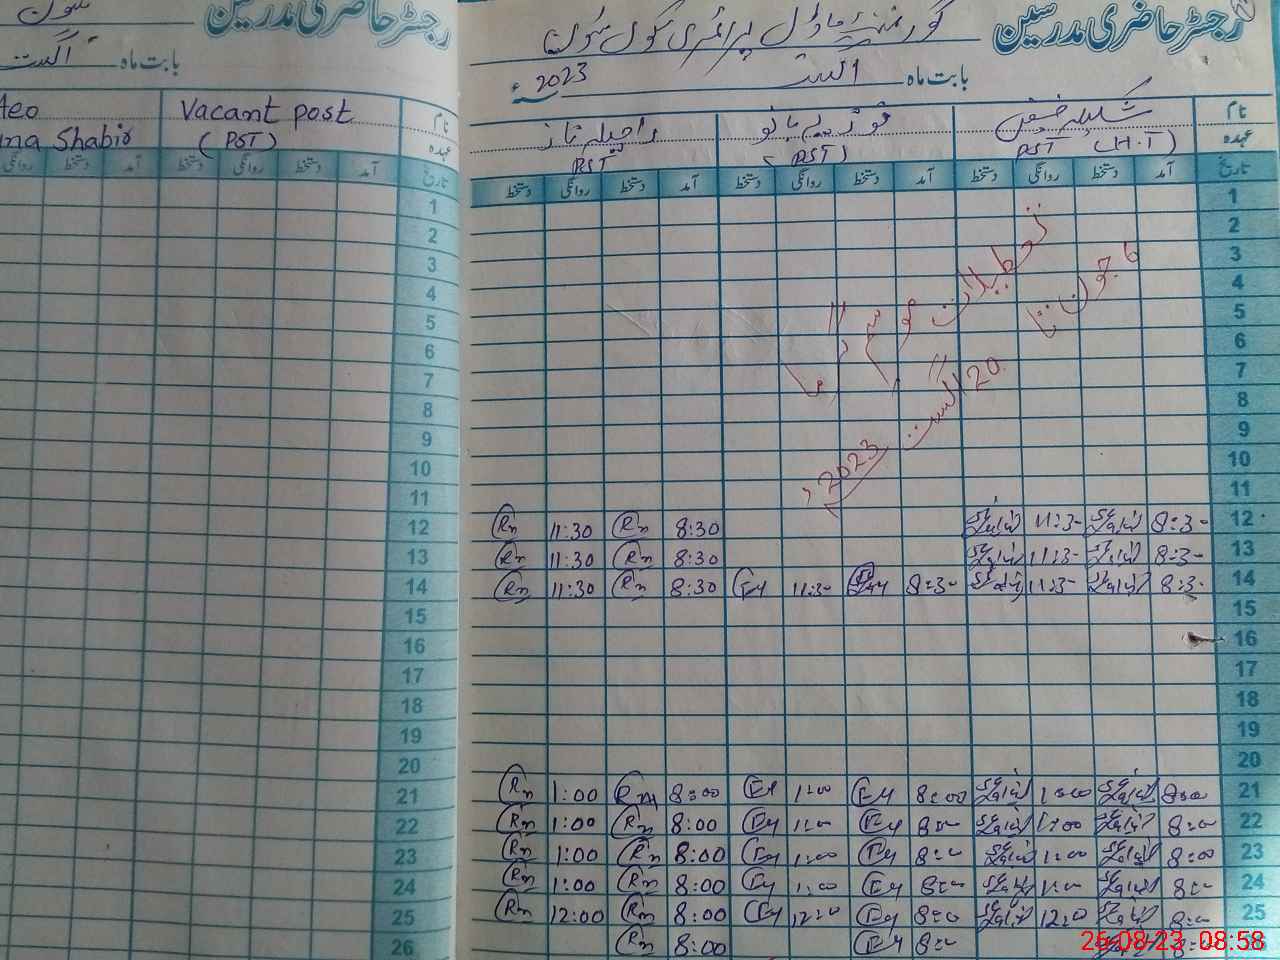 رجسٹر حاضری مدرسین
گورنمنٹ ماڈل پرائمری سکول
بابت ماہ اگست 2023ء
نام شکیلہ فوزیہ بانو راحیلہ ناز
عہدہ PST (H.T) (PST) PST
تاریخ آمد دستخط روانگی دستخط آمد دستخط روانگی دستخط آمد دستخط روانگی دستخط
1
2
3
4
5
6
7
8
9
10
11
تعطیلات موسم گرما
6 جون تا
20 اگست
2023ء
12 8:30 11:30 8:30 Rn 11:30 Rn
13 8:30 11:30 8:30 Rn 11:30 Rn
14 8:30 11:30 8:30 11:30 8:30 Rn 11:30 Rn
15
16
17
18
19
20
21 8:00 1:00 8:00 1:00 8:00 Rn 1:00 Rn
22 8:00 1:00 8:00 1:00 8:00 Rn 1:00 Rn
23 8:00 1:00 8:00 1:00 8:00 Rn 1:00 Rn
24 8:00 1:00 8:00 1:00 8:00 Rn 1:00 Rn
25 8:00 12:00 8:00 12:00 8:00 Rn 12:00 Rn
8:00 8:00 8:00 Rn
رجسٹر حاضری مدرسین
سکول
بابت ماہ اگست
نام Vacant post
عہدہ (PST) Shabir
تاریخ آمد دستخط روانگی دستخط آمد دستخط روانگی
1
2
3
4
5
6
7
8
9
10
11
12
13
14
15
16
17
18
19
20
21
22
23
24
25
26
26-08-23 08:58